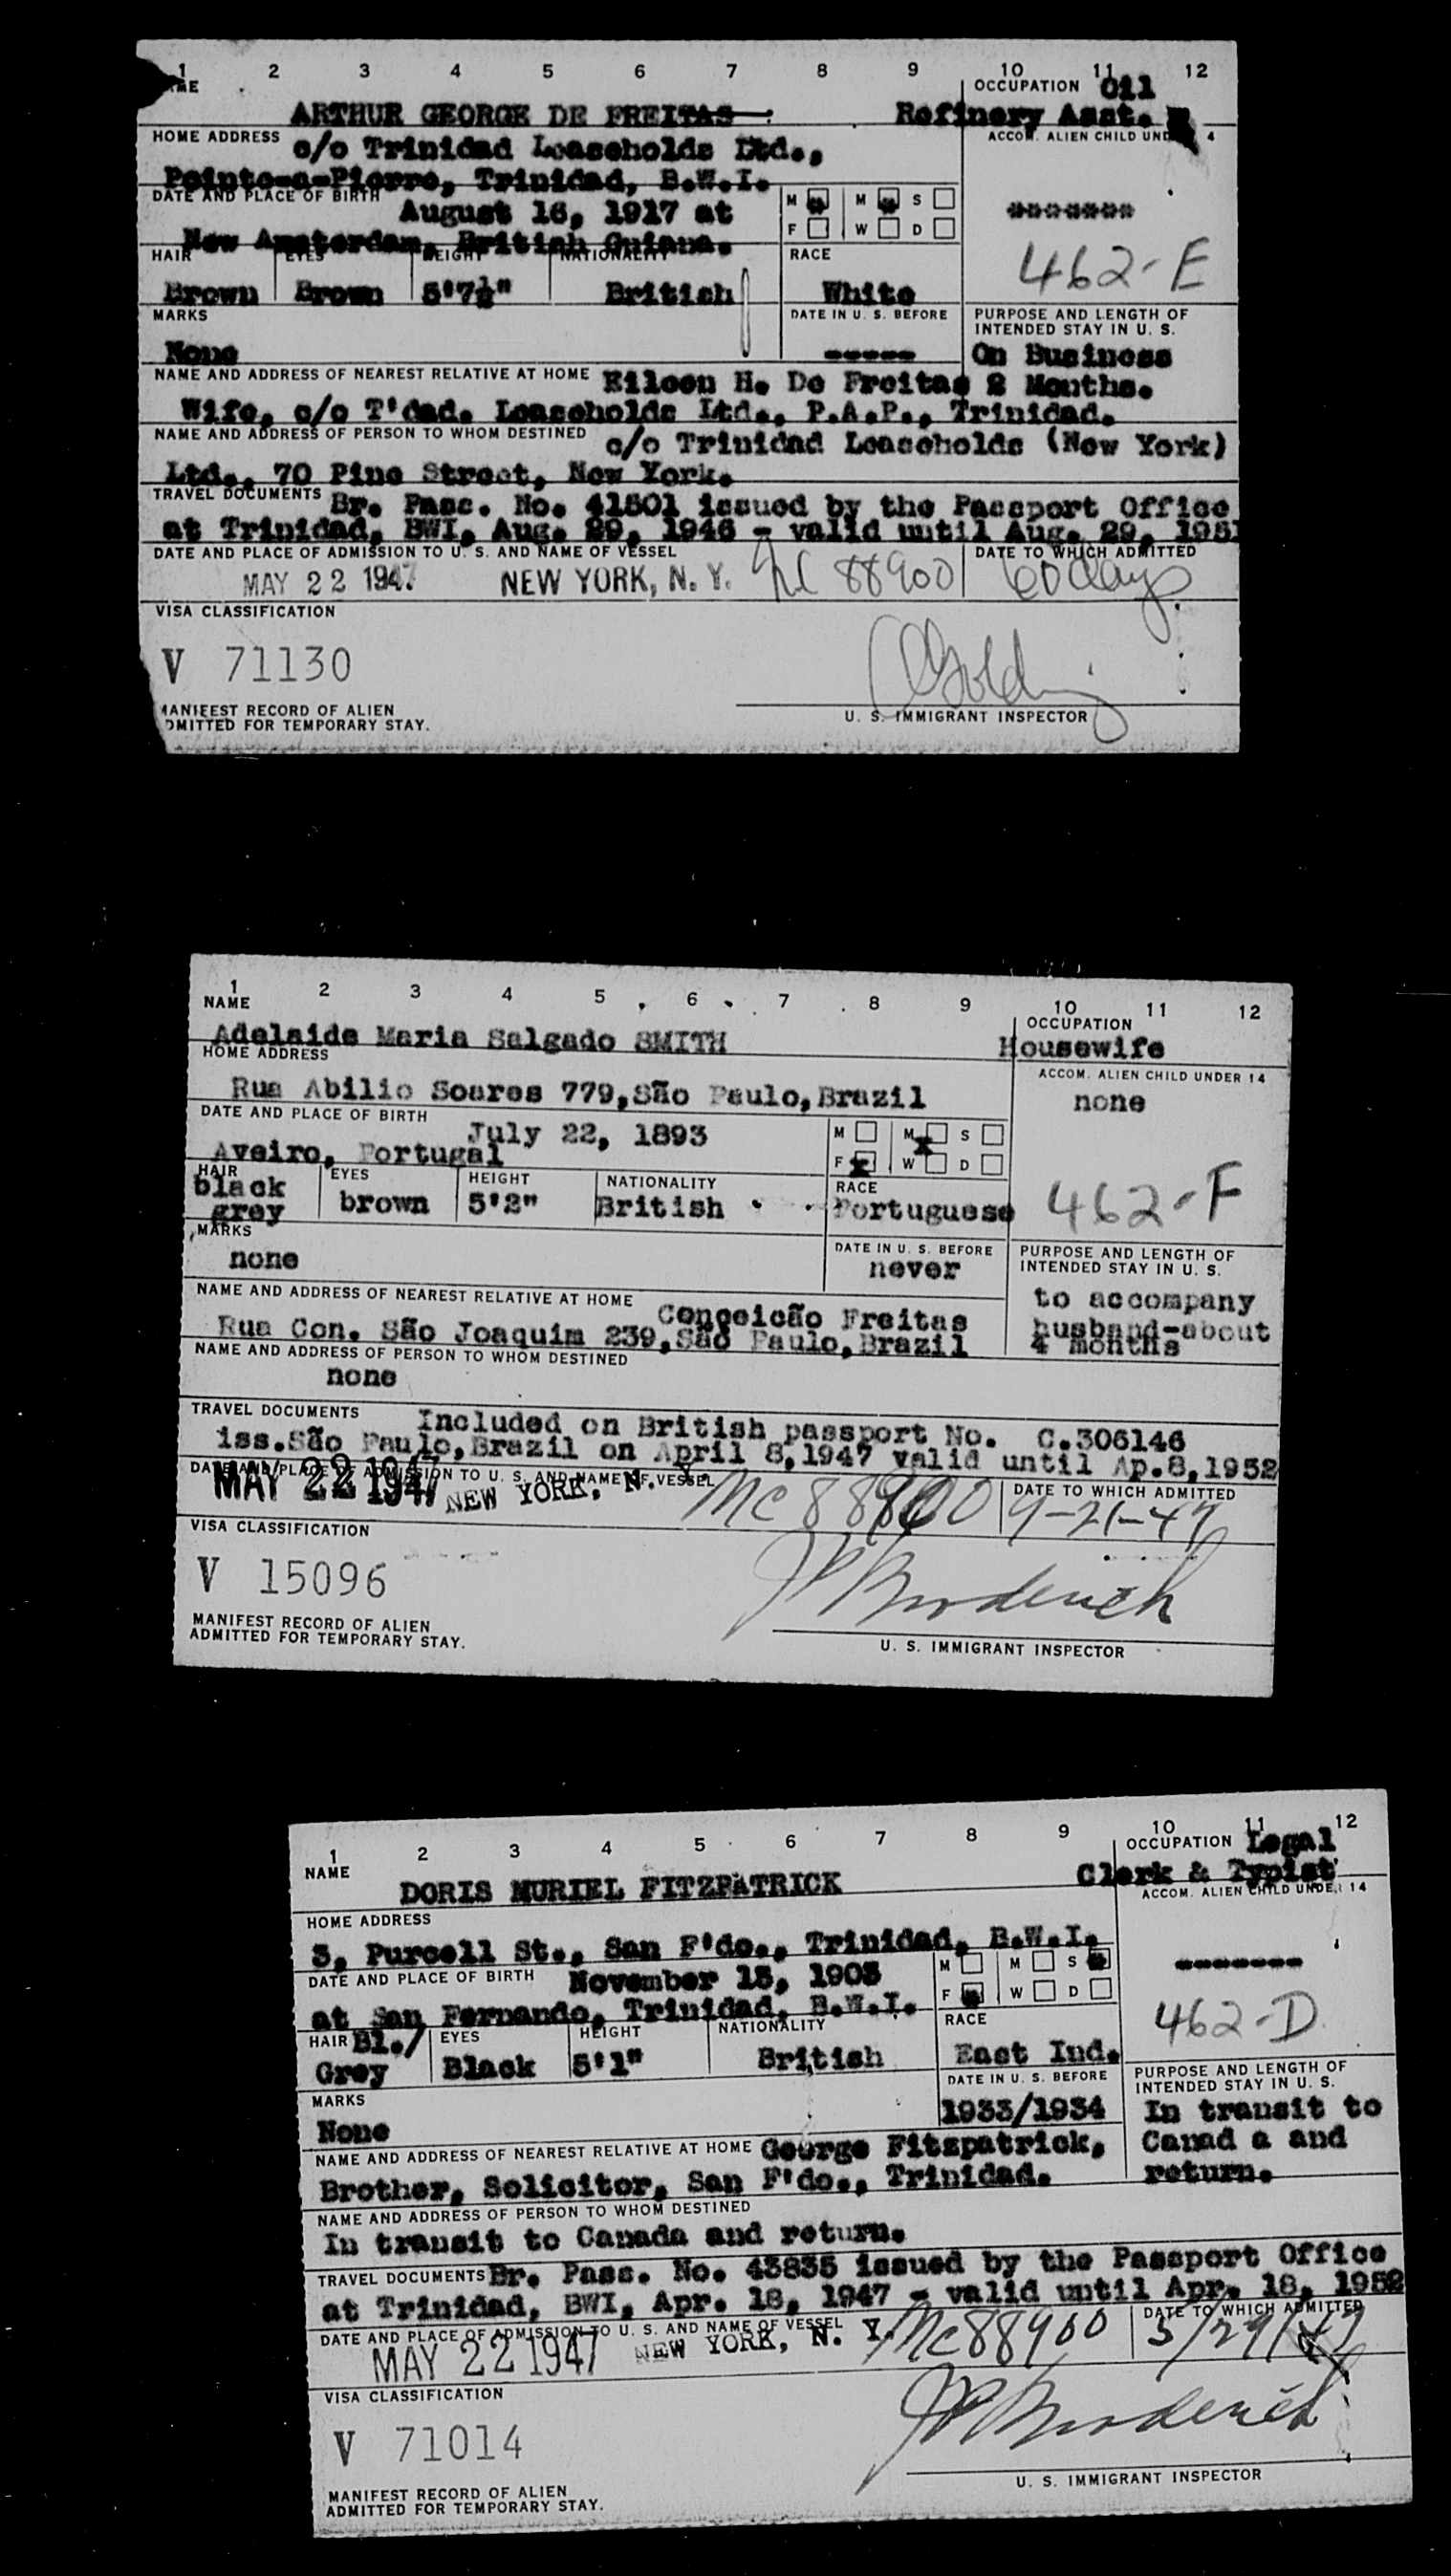 1 2 3 4 5 6 7 8 9 10 11 12
OCCUPATION Oil
ARTHUR GEORGE DE FREITAS Refinery Asst.
HOME ADDRESS c/o Trinidad Leaseholds Ltd., ACCOM. ALIEN CHILD UND 4
Pointe-a-Pierre, Trinidad, B.W.I.
DATE AND PLACE OF BIRTH August 16, 1917 at M M S
New Amsterdam, British Guiana. F W D
-------
462-E
HAIR EYES HEIGHT NATIONALITY RACE
Brown Brown 5'7½" British White
MARKS DATE IN U. S. BEFORE PURPOSE AND LENGTH OF
INTENDED STAY IN U. S.
None ----- On Business
NAME AND ADDRESS OF NEAREST RELATIVE AT HOME Eileen H. De Freitas 2 Months.
Wife, c/o T'dad. Leaseholds Ltd., P.A.P., Trinidad.
NAME AND ADDRESS OF PERSON TO WHOM DESTINED c/o Trinidad Leaseholds (New York)
Ltd., 70 Pine Street, New York.
TRAVEL DOCUMENTS Br. Pass. No. 41501 issued by the Passport Office
at Trinidad, BWI, Aug. 29, 1946 - valid until Aug. 29, 1951
DATE AND PLACE OF ADMISSION TO U. S. AND NAME OF VESSEL DATE TO WHICH ADMITTED
MAY 22 194 NEW YORK, N. Y. NC 88900 60 days
VISA CLASSIFICATION
V 71130
MANIFEST RECORD OF ALIEN
ADMITTED FOR TEMPORARY STAY. U. S. IMMIGRANT INSPECTOR
1 2 3 4 5 6 7 8 9 10 11 12
NAME OCCUPATION
Adelaide Maria Salgado SMITH Housewife
HOME ADDRESS ACCOM. ALIEN CHILD UNDER 14
Rua Abilio Soares 779, São Paulo, Brazil none
DATE AND PLACE OF BIRTH July 22, 1893 M M S
Aveiro, Portugal F W D
HAIR EYES HEIGHT NATIONALITY RACE
black brown 5'2" British Portuguese 462-F
grey
MARKS DATE IN U. S. BEFORE PURPOSE AND LENGTH OF
INTENDED STAY IN U. S.
none never
NAME AND ADDRESS OF NEAREST RELATIVE AT HOME to accompany
Conceicão Freitas husband-about
Rua Con. São Joaquim 239, São Paulo, Brazil 4 months
NAME AND ADDRESS OF PERSON TO WHOM DESTINED
none
TRAVEL DOCUMENTS Included on British passport No. C.306146
iss. São Paulo, Brazil on April 8, 1947 valid until Ap.8, 1952
DATE AND PLACE OF ADMISSION TO U. S. AND NAME OF VESSEL DATE TO WHICH ADMITTED
MAY 22 1947 NEW YORK, N. Y. NC 88900 9-21-47
VISA CLASSIFICATION
V 15096 J P Broderick
MANIFEST RECORD OF ALIEN
ADMITTED FOR TEMPORARY STAY. U. S. IMMIGRANT INSPECTOR
1 2 3 4 5 6 7 8 9 10 11 12
NAME OCCUPATION Legal
DORIS MURIEL FITZPATRICK Clerk & Typist
HOME ADDRESS ACCOM. ALIEN CHILD UNDER 14
3, Purcell St., San F'do., Trinidad, B.W.I.
DATE AND PLACE OF BIRTH November 13, 1903 M M S -------
at San Fernando, Trinidad, B.W.I. F W D
HAIR Bl./ EYES HEIGHT NATIONALITY RACE 462-D
Grey Black 5'1" British East Ind.
MARKS DATE IN U. S. BEFORE PURPOSE AND LENGTH OF
INTENDED STAY IN U. S.
None 1933/1934 In transit to
NAME AND ADDRESS OF NEAREST RELATIVE AT HOME George Fitzpatrick, Canad a and
Brother, Solicitor, San F'do., Trinidad. return.
NAME AND ADDRESS OF PERSON TO WHOM DESTINED
In transit to Canada and return.
TRAVEL DOCUMENTS Br. Pass. No. 43835 issued by the Passport Office
at Trinidad, BWI, Apr. 18, 1947 - valid until Apr. 18, 1952
DATE AND PLACE OF ADMISSION TO U. S. AND NAME OF VESSEL DATE TO WHICH ADMITTED
MAY 22 1947 NEW YORK, N. Y. NC 88900 5/29/47
VISA CLASSIFICATION
V 71014 J P Broderick
MANIFEST RECORD OF ALIEN
ADMITTED FOR TEMPORARY STAY. U. S. IMMIGRANT INSPECTOR